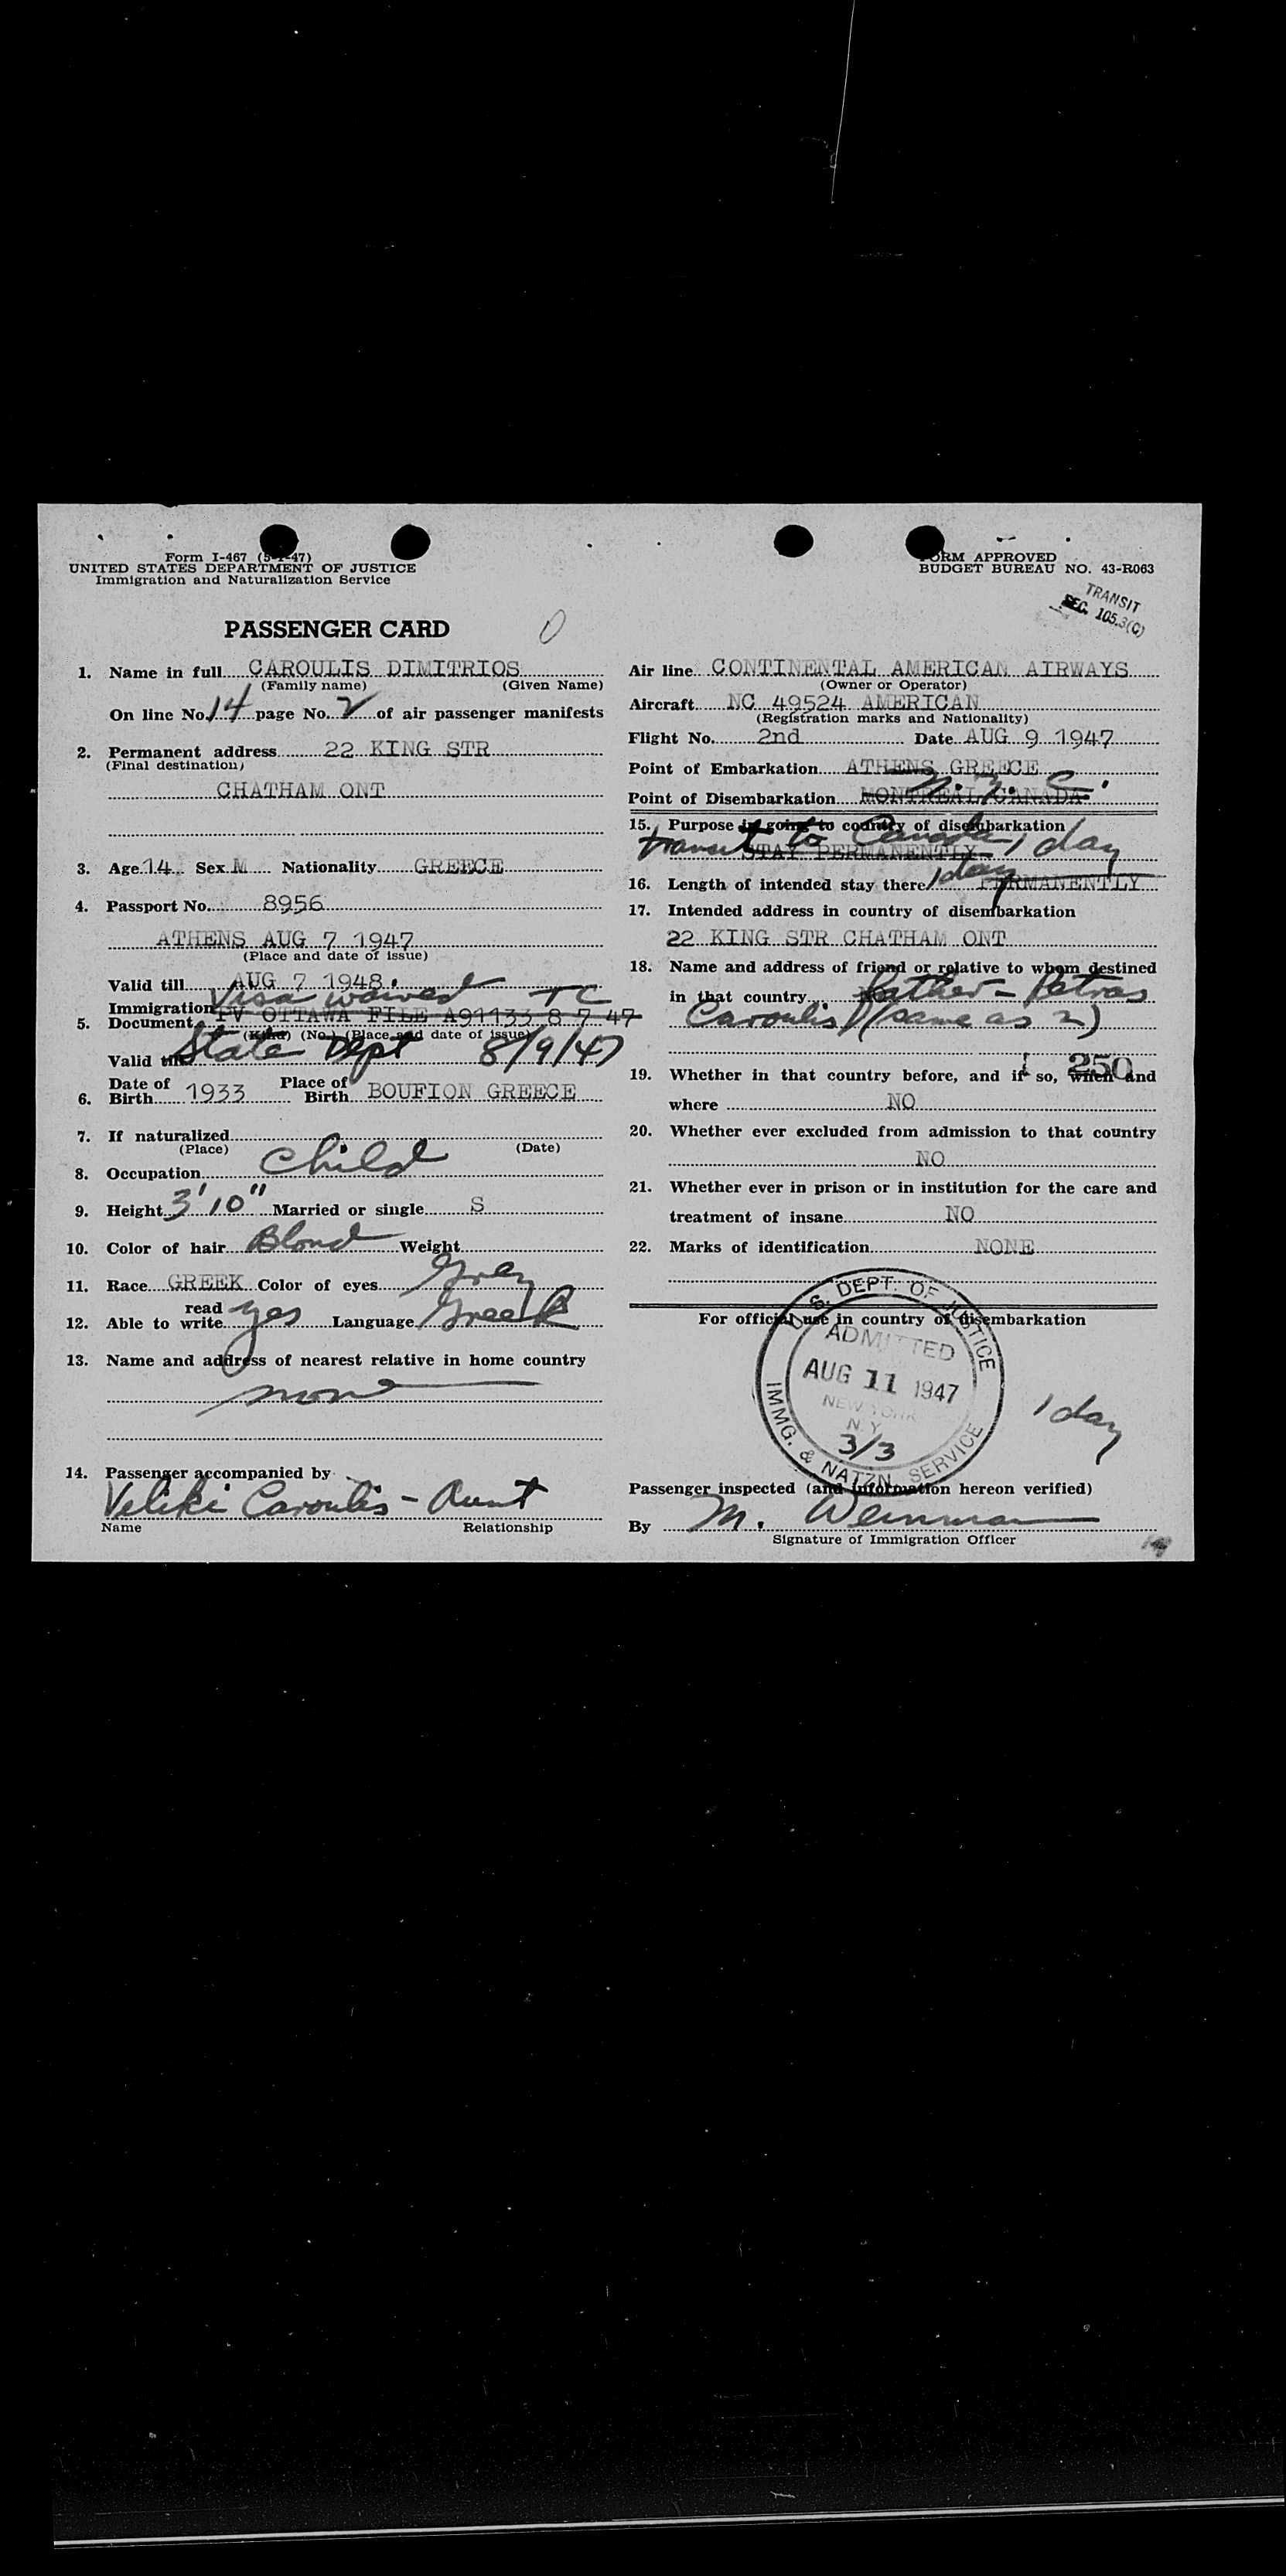 Form I-467 (5-1-47)
UNITED STATES DEPARTMENT OF JUSTICE
Immigration and Naturalization Service
FORM APPROVED
BUDGET BUREAU NO. 43-R063
TRANSIT
SEC. 105.3(C)
PASSENGER CARD
0
1. Name in full CAROULIS DIMITRIOS
(Family name) (Given Name)
On line No. 14 page No. 2 of air passenger manifests
2. Permanent address 22 KING STR
(Final destination)
CHATHAM ONT
3. Age 14 Sex M Nationality GREECE
4. Passport No. 8956
ATHENS AUG 7 1947
(Place and date of issue)
Valid till AUG 7 1948
Visa waived TC
Immigration
5. Document PV OTTAWA FILE A91133 8 7 47
(Kind) (No.) (Place and date of issue)
Valid till State Dept 8/9/47
6. Date of Birth 1933 Place of Birth BOUFION GREECE
7. If naturalized
(Place) (Date)
8. Occupation Child
9. Height 3'10" Married or single S
10. Color of hair Blond Weight
11. Race GREEK Color of eyes Grey
read
12. Able to write yes Language Greek
13. Name and address of nearest relative in home country
none
14. Passenger accompanied by
Veliki Caroulis - Aunt
Name Relationship
Air line CONTINENTAL AMERICAN AIRWAYS
(Owner or Operator)
Aircraft NC 49524 AMERICAN
(Registration marks and Nationality)
Flight No. 2nd Date AUG 9 1947
Point of Embarkation ATHENS GREECE
Point of Disembarkation MONTREAL CANADA
15. Purpose in going to country of disembarkation
transit to Canada, 1 day
STAY PERMANENTLY
16. Length of intended stay there 1 day PERMANENTLY
17. Intended address in country of disembarkation
22 KING STR CHATHAM ONT
18. Name and address of friend or relative to whom destined
in that country father - Petros
Caroulis (same as 2)
250
19. Whether in that country before, and if so, when and
where NO
20. Whether ever excluded from admission to that country
NO
21. Whether ever in prison or in institution for the care and
treatment of insane NO
22. Marks of identification NONE
For official use in country of disembarkation
U. S. DEPT. OF JUSTICE
ADMITTED
AUG 11 1947
NEW YORK
N.Y.
3/3
IMMG. & NATZN. SERVICE
1 day
Passenger inspected (and information hereon verified)
By M. Weinman
Signature of Immigration Officer